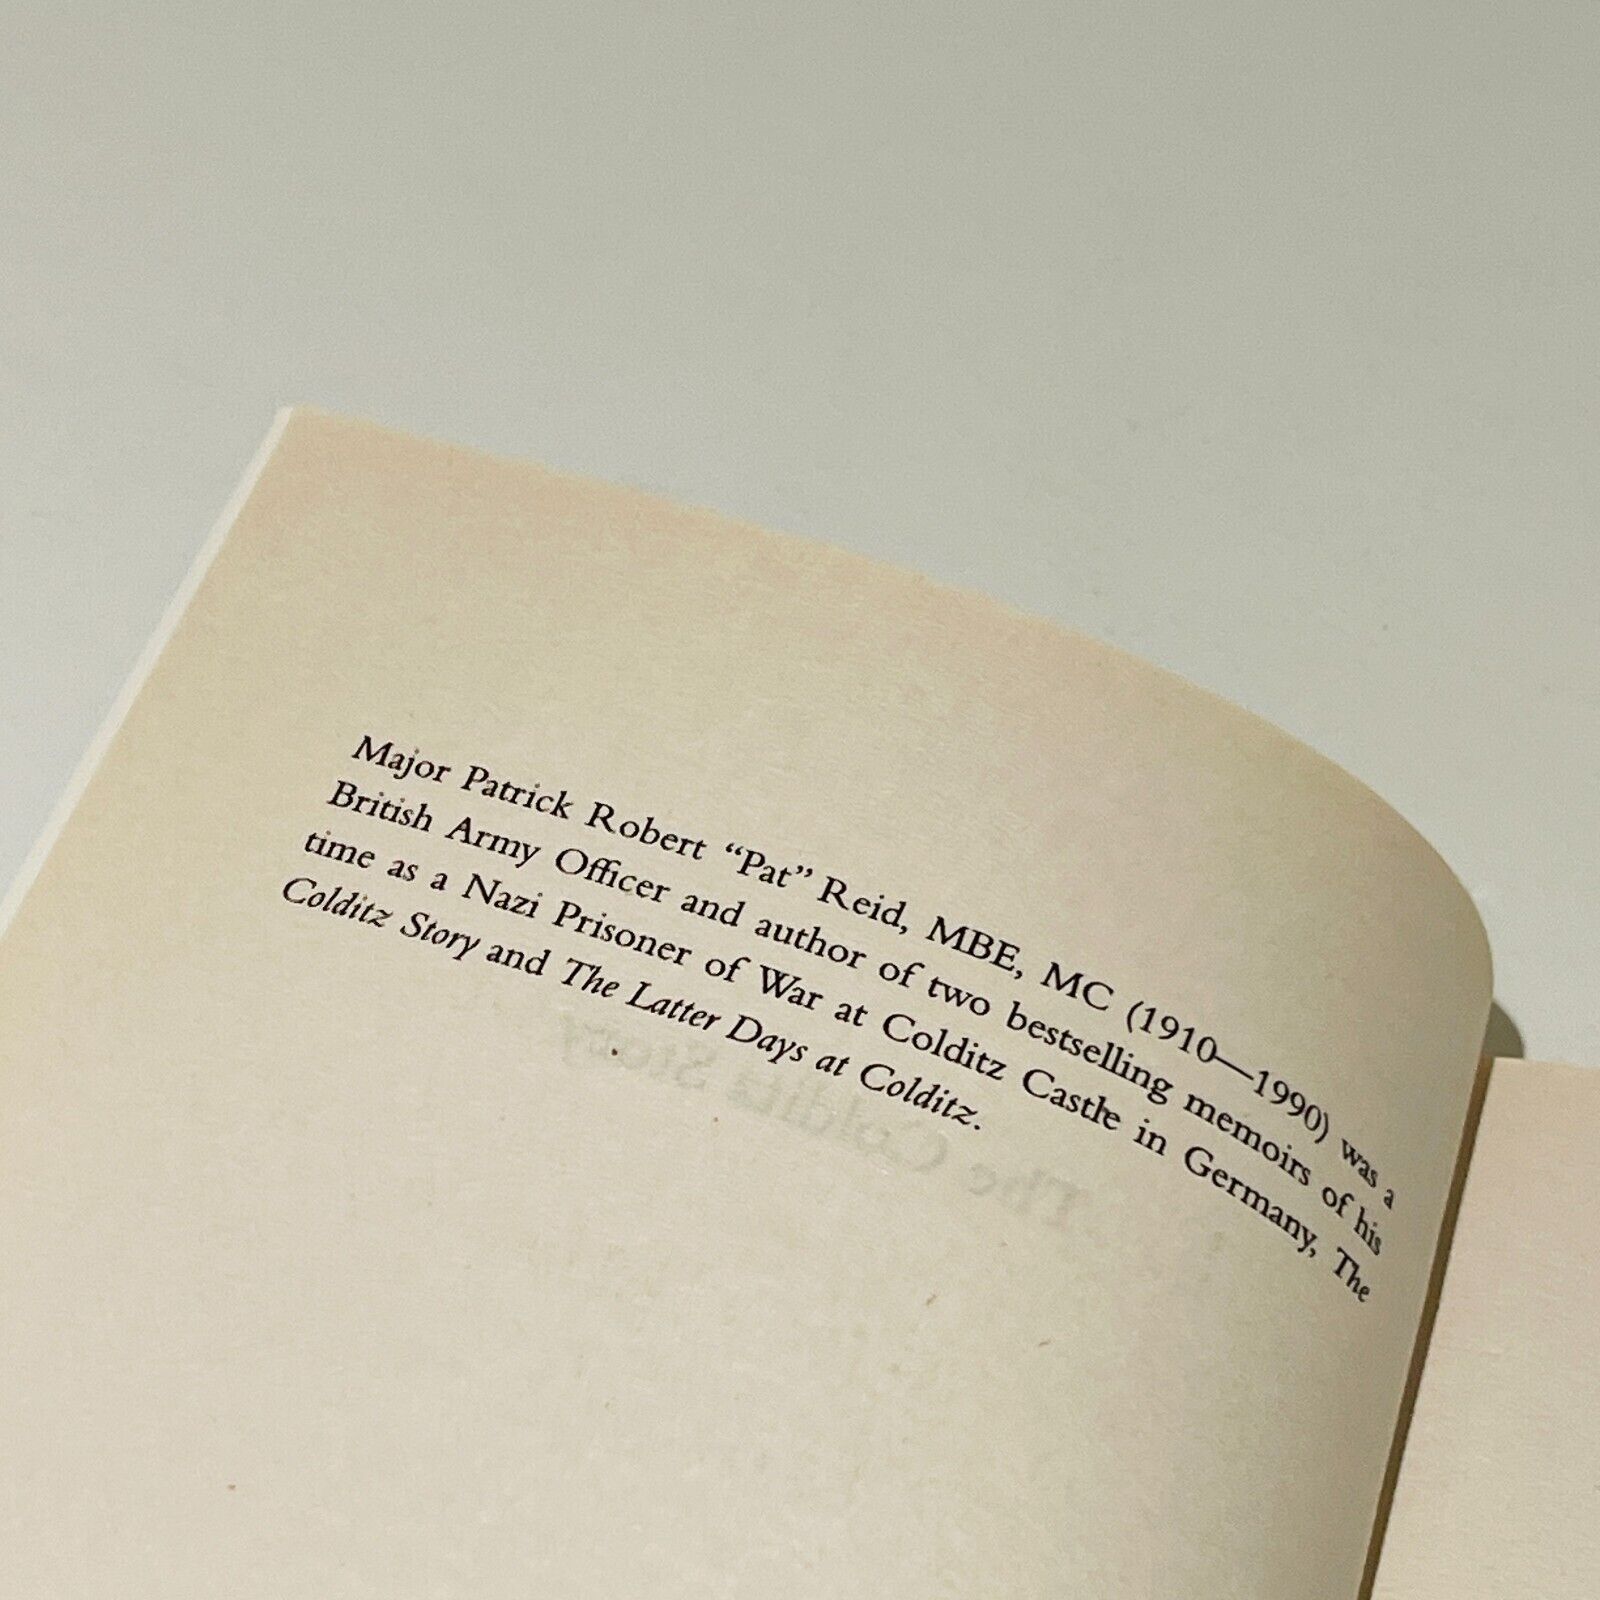 Major Patrick Robert “Pat” Reid, MBE, MC (1910—1990) was a
British Army Officer and author of two bestselling memoirs of his
time as a Nazi Prisoner of War at Colditz Castle in Germany, The
Colditz Story and The Latter Days at Colditz.
The Colditz Story